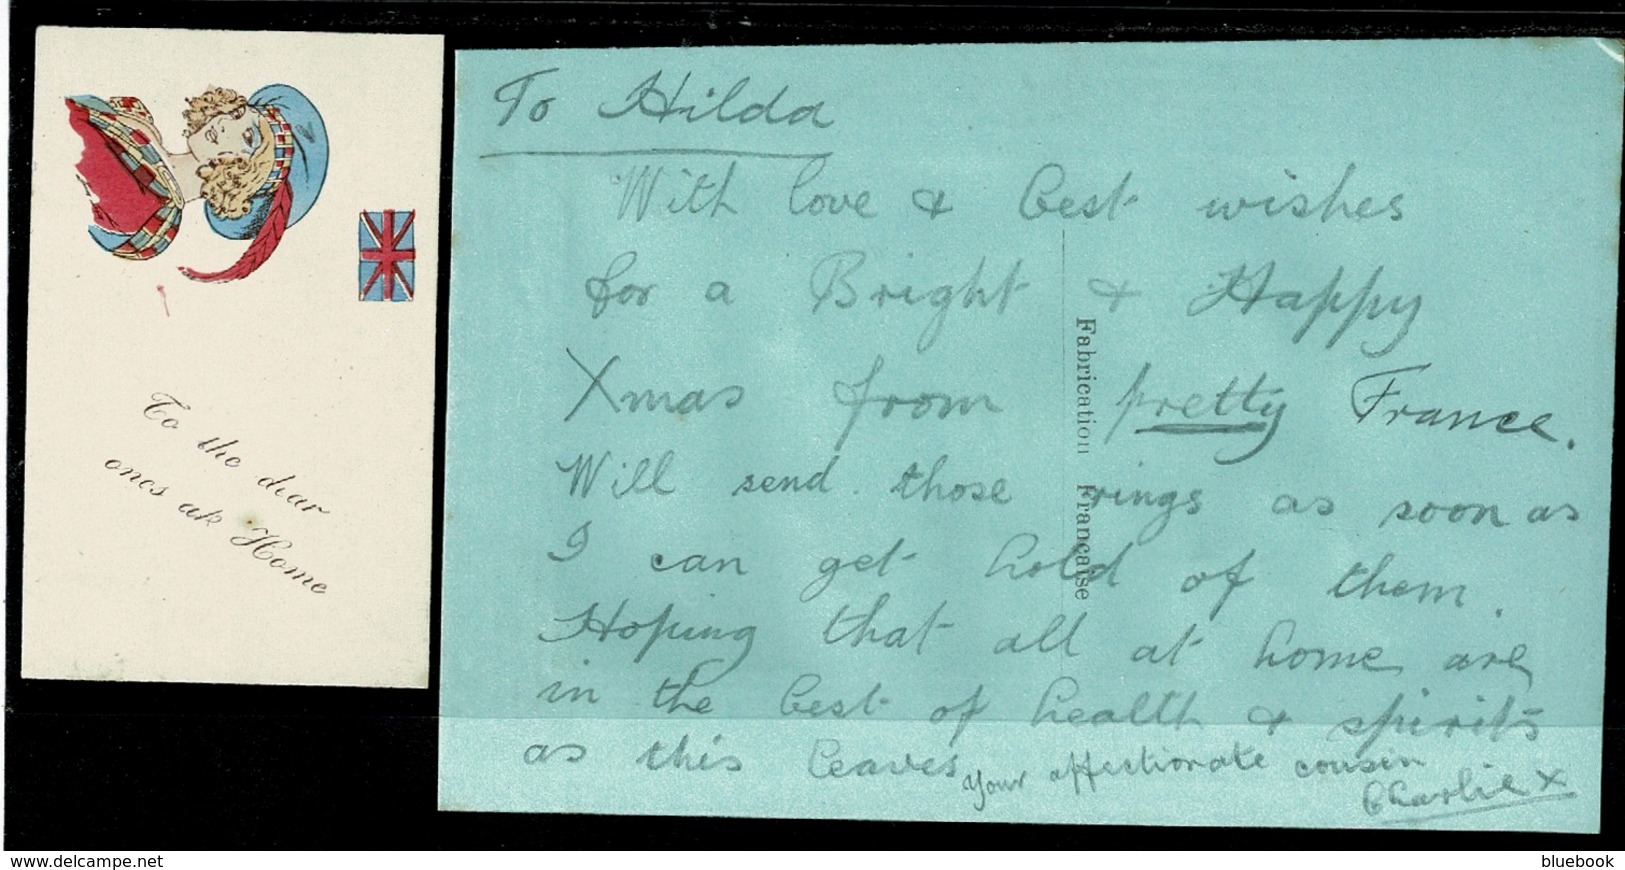 To the dear
ones at Home
To Hilda
With love & best wishes
for a Bright & Happy
Xmas from pretty France.
Will send those rings as soon as
I can get hold of them.
Hoping that all at home are
in the best of health & spirits
as this leaves
your affectionate cousin
Charlie x
Fabrication Française
www.delcampe.net
bluebook